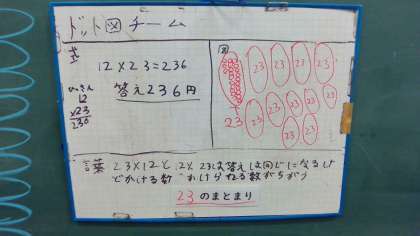 ドット図チーム
式
12×23=236
答え236円
ひっさん
12
×23
236
図
23 23 23 23
23 23 23 23 23 23
23 23
言葉 23×12と12×23は答えは同じになるけ
どかける数 かけられる数がちがう
23のまとまり